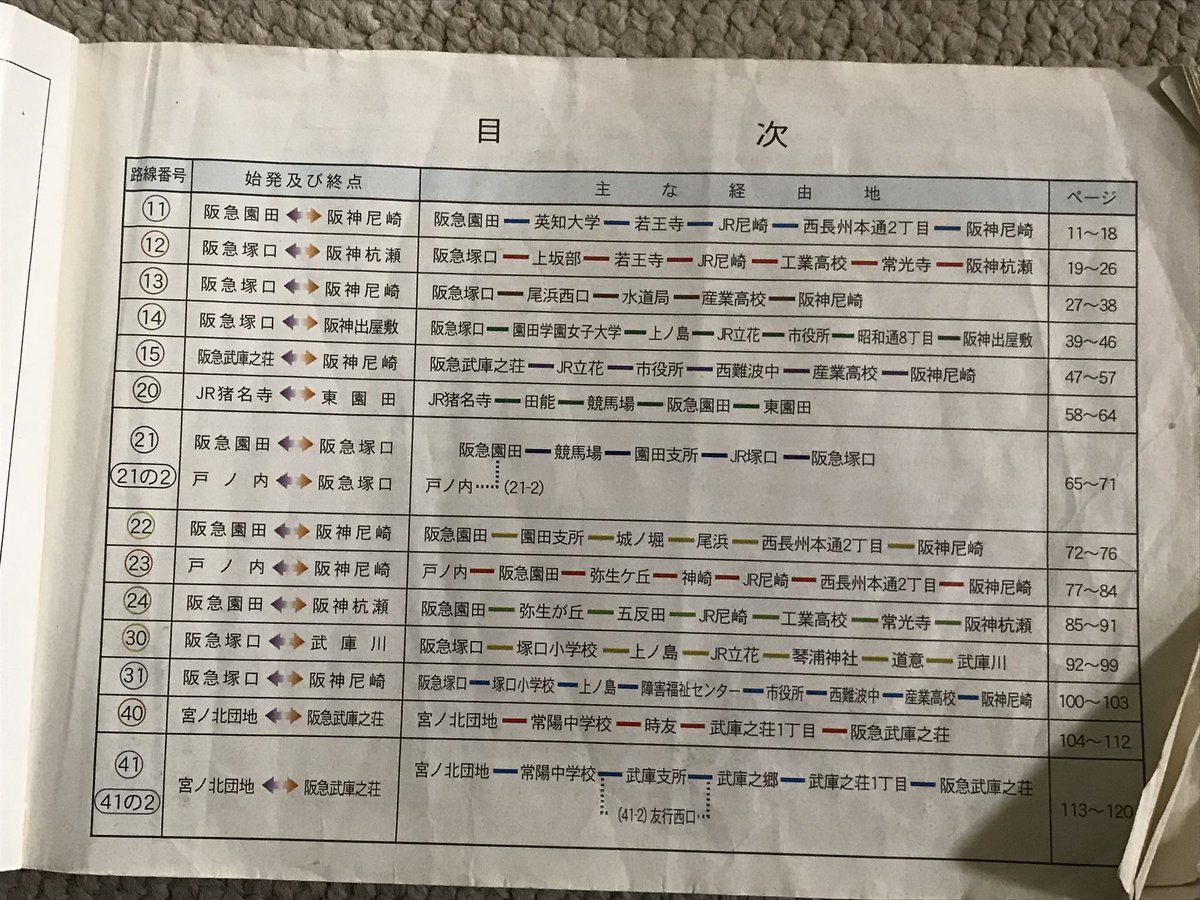 目次
路線番号 始発及び終点 主な経由地 ページ
⑪ 阪急園田 阪神尼崎 阪急園田 ― 英知大学 ― 若王寺 ― JR尼崎 ― 西長州本通2丁目 ― 阪神尼崎 11～18
⑫ 阪急塚口 阪神杭瀬 阪急塚口 ― 上坂部 ― 若王寺 ― JR尼崎 ― 工業高校 ― 常光寺 ― 阪神杭瀬 19～26
⑬ 阪急塚口 阪神尼崎 阪急塚口 ― 尾浜西口 ― 水道局 ― 産業高校 ― 阪神尼崎 27～38
⑭ 阪急塚口 阪神出屋敷 阪急塚口 ― 園田学園女子大学 ― 上ノ島 ― JR立花 ― 市役所 ― 昭和通8丁目 ― 阪神出屋敷 39～46
⑮ 阪急武庫之荘 阪神尼崎 阪急武庫之荘 ― JR立花 ― 市役所 ― 西難波中 ― 産業高校 ― 阪神尼崎 47～57
⑳ JR猪名寺 東園田 JR猪名寺 ― 田能 ― 競馬場 ― 阪急園田 ― 東園田 58～64
㉑ 阪急園田 阪急塚口 阪急園田 ― 競馬場 ― 園田支所 ― JR塚口 ― 阪急塚口 65～71
21の2 戸ノ内 阪急塚口 戸ノ内 (21-2)
㉒ 阪急園田 阪神尼崎 阪急園田 ― 園田支所 ― 城ノ堀 ― 尾浜 ― 西長州本通2丁目 ― 阪神尼崎 72～76
㉓ 戸ノ内 阪神尼崎 戸ノ内 ― 阪急園田 ― 弥生ケ丘 ― 神崎 ― JR尼崎 ― 西長州本通2丁目 ― 阪神尼崎 77～84
㉔ 阪急園田 阪神杭瀬 阪急園田 ― 弥生が丘 ― 五反田 ― JR尼崎 ― 工業高校 ― 常光寺 ― 阪神杭瀬 85～91
㉚ 阪急塚口 武庫川 阪急塚口 ― 塚口小学校 ― 上ノ島 ― JR立花 ― 琴浦神社 ― 道意 ― 武庫川 92～99
㉛ 阪急塚口 阪神尼崎 阪急塚口 ― 塚口小学校 ― 上ノ島 ― 障害福祉センター ― 市役所 ― 西難波中 ― 産業高校 ― 阪神尼崎 100～103
㊵ 宮ノ北団地 阪急武庫之荘 宮ノ北団地 ― 常陽中学校 ― 時友 ― 武庫之荘1丁目 ― 阪急武庫之荘 104～112
㊶ 宮ノ北団地 阪急武庫之荘 宮ノ北団地 ― 常陽中学校 ― 武庫支所 ― 武庫之郷 ― 武庫之荘1丁目 ― 阪急武庫之荘 113～120
41の2 (41-2) 友行西口